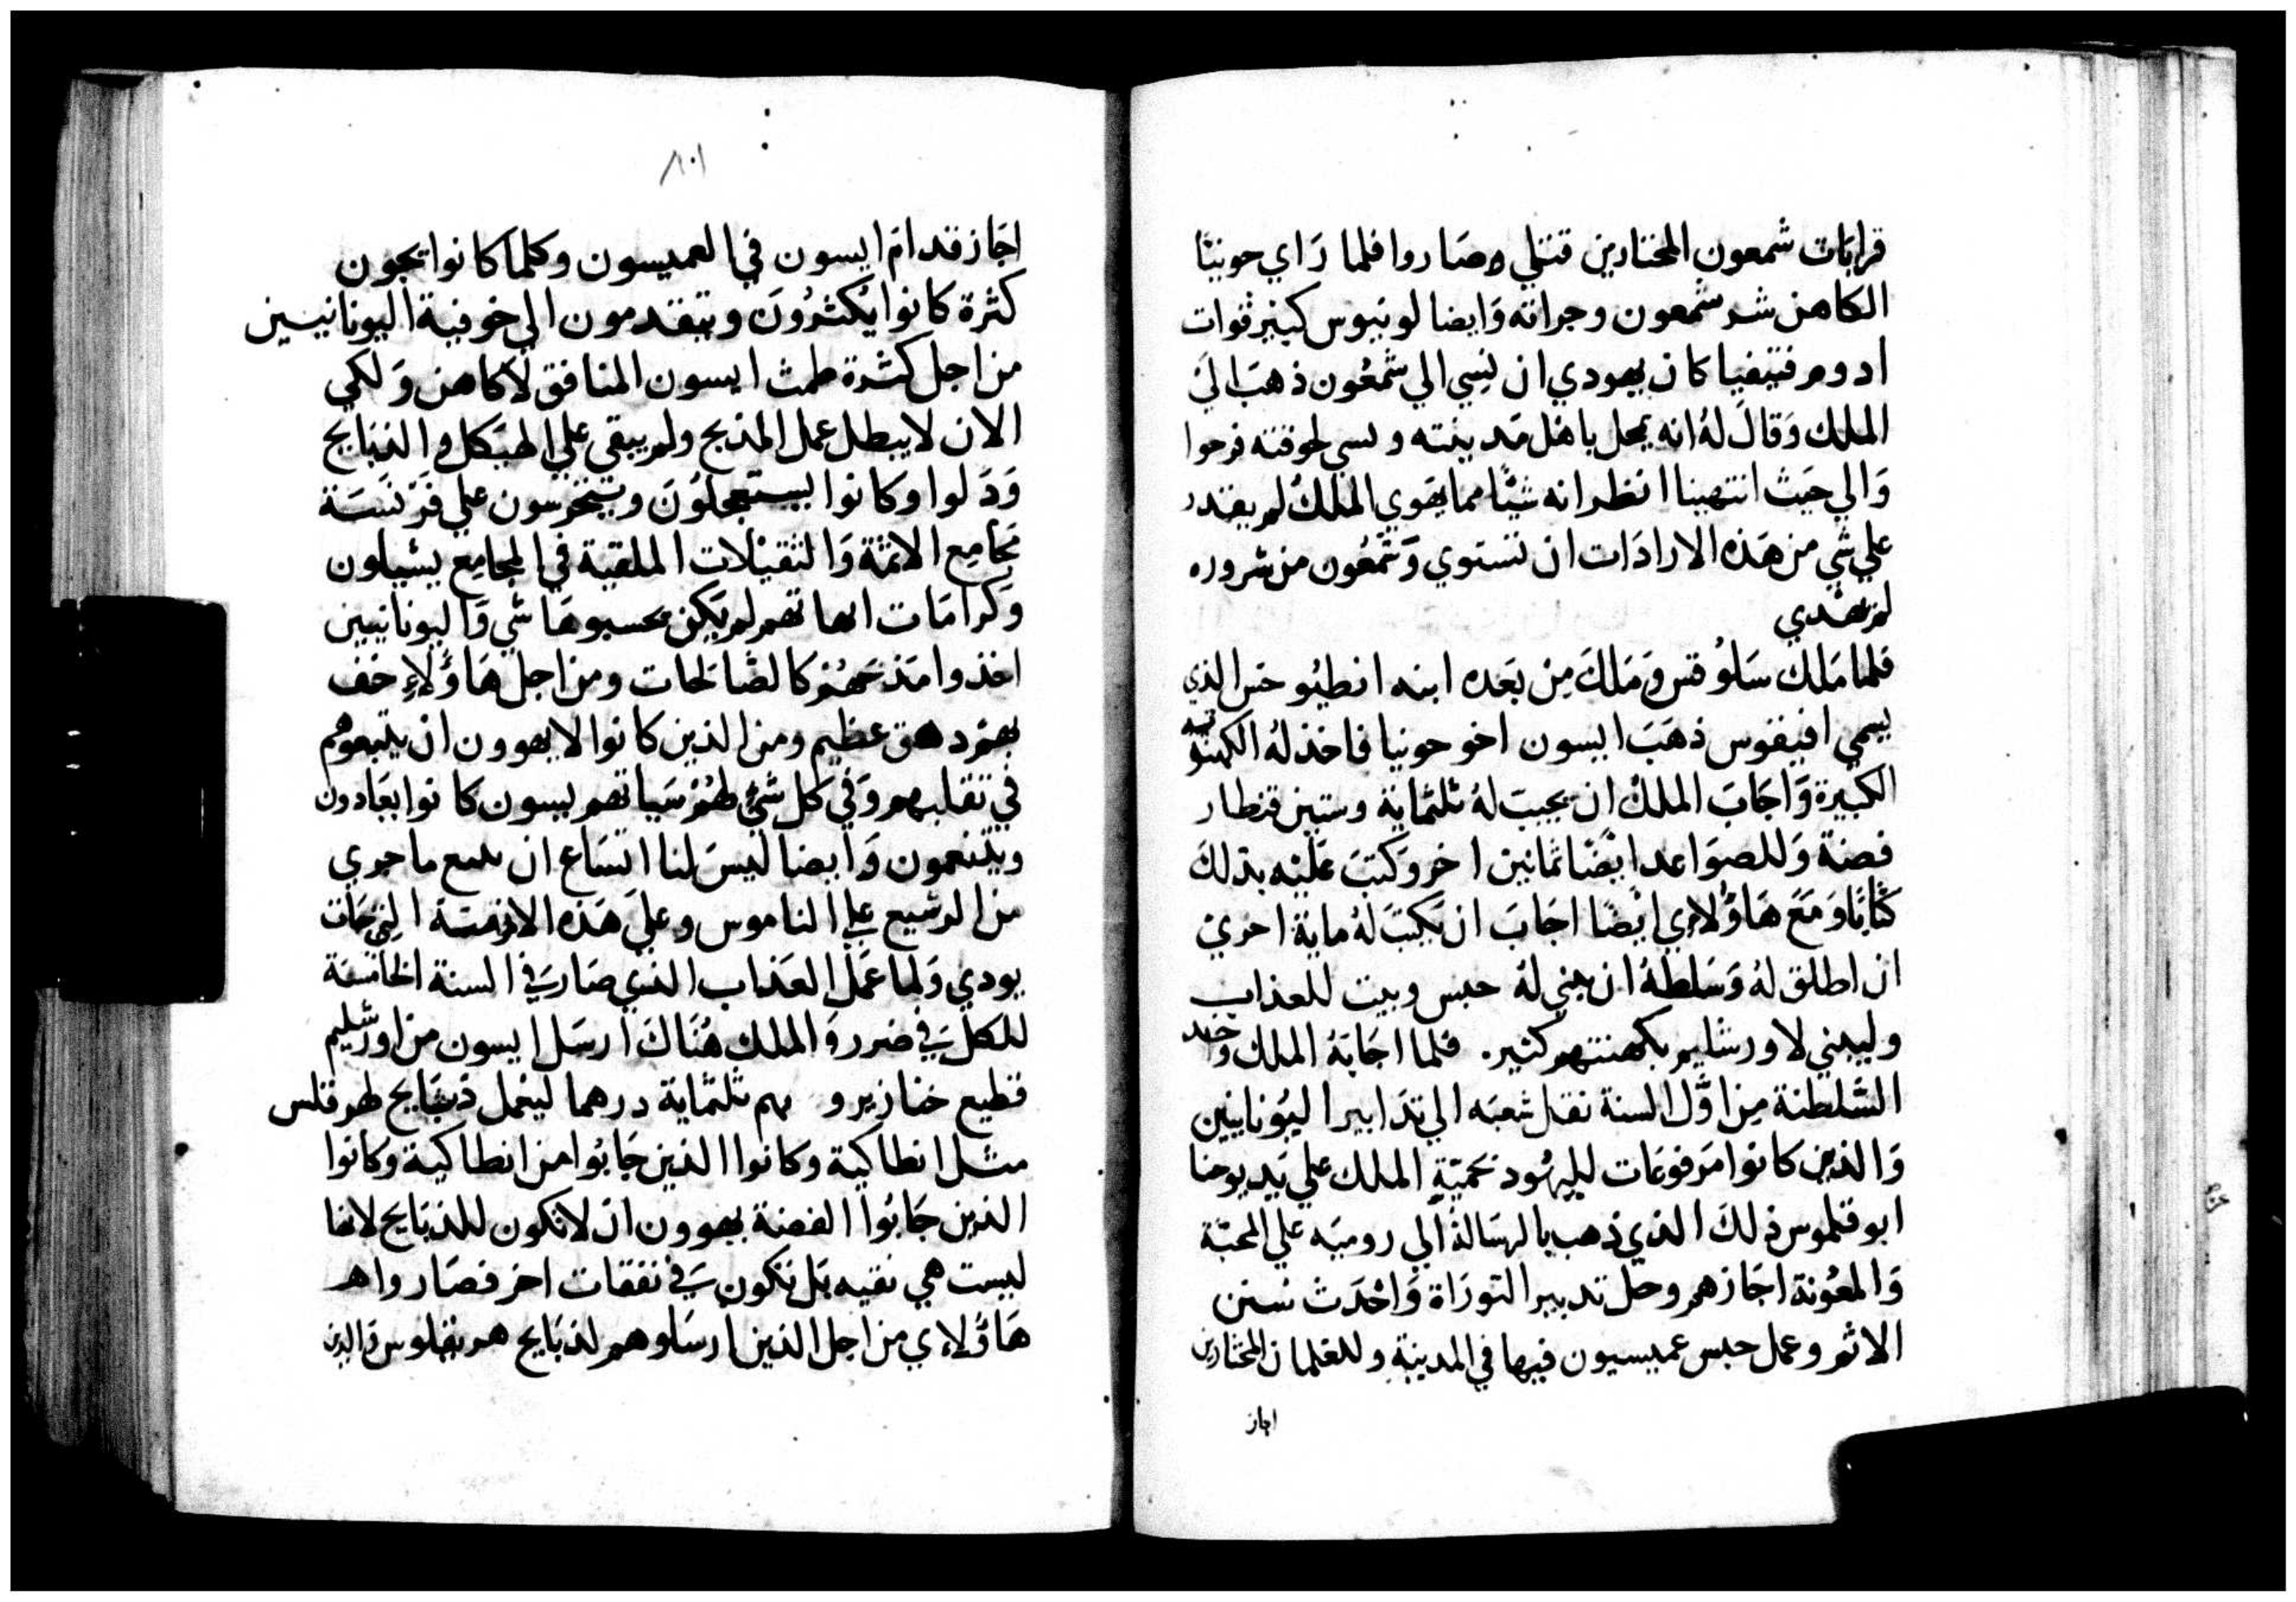 قرابات شمعون المختارين قتلي وصاروا فلما راي حونيا
الكاهن شر شمعون وجراته وايضا لونيوس كبير قوات
ادوم فينفيا كان يهودي ان نسي الي شمعون ذهب الي
الملك وقال له انه محل باهل مدينته ولسي لحوقته فرحوا
والي حيث انتهينا انظر انه شيًا مما يهوي الملك لم يقتدر
علي شي من هذه الارادات ان تستوي وشمعون من شروره
لم يهدي
فلما ملك سلوقس وملك من بعده ابنه انطيوخس الذي
يسمي افيفوس ذهب ايسون اخو حونيا فاخذ له الكهنوتيه
الكبيرة واجاب الملك ان يجيب له ثلثماية وستين قنطار
فضة وللصواعد ايضا ثمانين اخر وكتب عليه بذلك
كتابا ومع هاولاي ايضا اجاب ان يكتب له ماية اخري
ان اطلق له وسلطة ان يبني له حبس وبيت للعذاب
وليبني لاورشليم بكهنتهم كثير. فلما اجابه الملك واخد
السلطنة من اول السنة نقل شعبه الي تدابير اليونانيين
والذين كانوا مرفوعات لليهود بحمية الملك علي يد يوحنا
ابوقلموس ذلك الذي ذهب بالرسالة الي روميه علي المحبة
والمعونة اجازهم وحل تدبير التوراة واحدث سنن
الاثم وعمل حبس عميسيون فيها في المدينة وللغلمان المختارين
اجاز
٨٠١
اجاز قدام ايسون في العميسون وكلما كانوا يجون
كثرة كانوا يكثرون ويتقدمون الي خوفية اليونانيين
من اجل كثرة طمث ايسون المنافق لاكاهن ولكي
الان لا يبطل عمل المذبح ولم يبقي علي الهيكل والذبايح
ودلوا وكانوا يستعجلون ويتحرسون علي فرنسة
مجامع الائمة والثقيلات الملقية في المجامع يشيلون
وكرامات ابهاتهم لم يكن يحسبوها شي واليونانيين
اخذوا مذحهم كالصالحات ومن اجل هاولاء خف
بهم دهق عظيم ومن الذين كانوا لا يهوون ان يتبعوهم
في تقلبهم وفي كل شي لهم سياتهم يسون كانوا يعادون
ويتنعمون وايضا ليس لنا اتساع ان ما جري
من الرشيع علي الناموس وعلي هذه الازمنة التي جات
يودي ولما عمل العذاب الذي صار في السنة الخامسة
للكل في ضرر والملك هناك ارسل ايسون من اورشليم
قطيع خنازير و بهم ثلثماية درهما ليعمل ذبايح لهرقلس
مثل انطاكية وكانوا الذين جابوا من انطاكية وكانوا
الذين جابوا الفضة يهوون ان لا تكون للذبايح لانها
ليست هي نقيه بل تكون في نفقات اخر فصاروا هر
هاولاي من اجل الذين ارسلوهم لذبايح هرنقلوس والدين